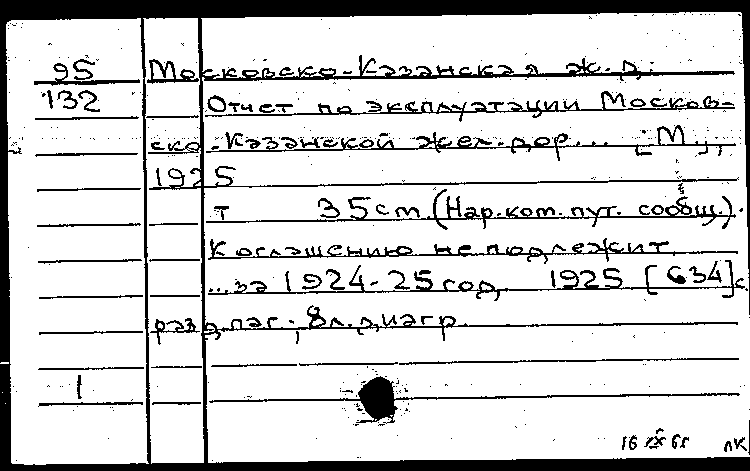 95 Московско-Казанская ж.д.
132 Отчет по эксплуатации Москов-
ско-Казанской жел.дор... [М.],
1925
т 35 cm. (Нар.ком. пут. сообщ.).
К оглашению не подлежит
...за 1924-25 год, 1925 [634] с.
разд.паг.; 8л.диагр.
1
16 IX 61 лк